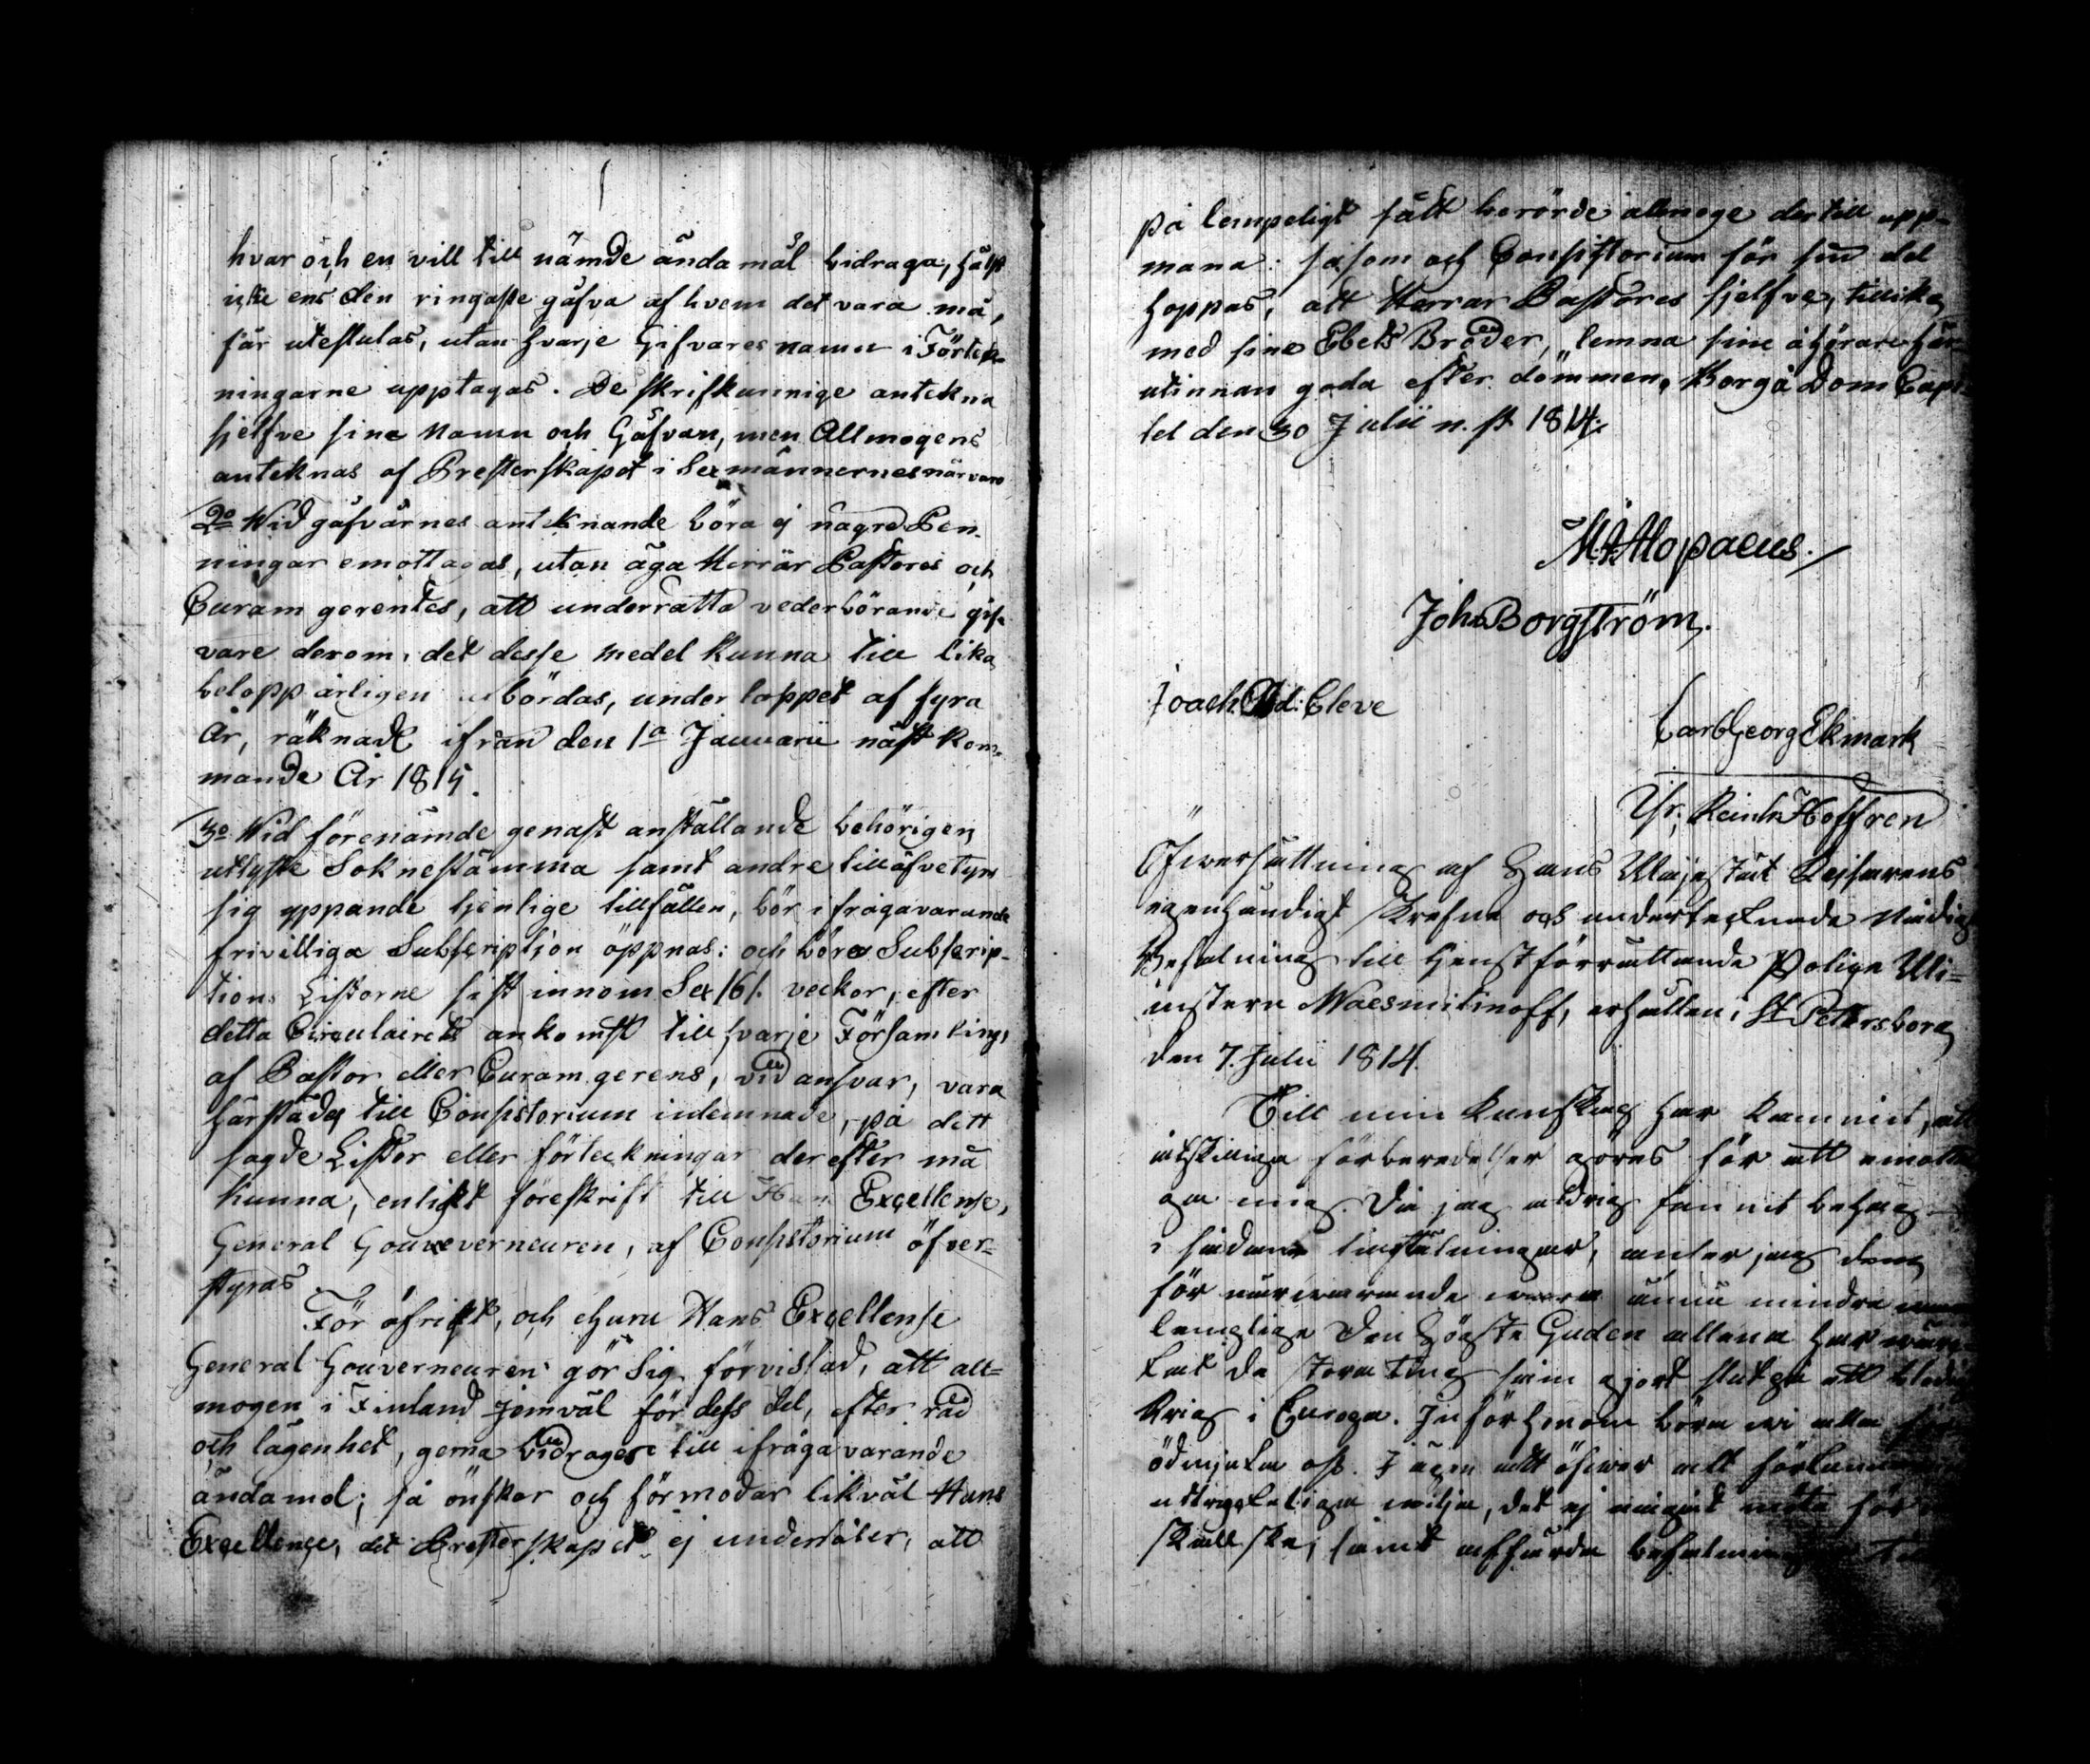 hvar och en vill till nämde ändamål bidraga, hälst
icke ens den ringaste gåfva af hvem det vara må,
får uteslutas, utan hvarje Gifvares namn i Förtek-
ningarne upptagas. De skrifkunnige antekna
sjelfve sina Namn och Gåfvan, men Allmogens
anteknas af Presterskapet i Sexmännernes närvaro
2o Wid gåfvornes antecknande böra ej någre Pen-
ningar emottagas, utan äga Herrar Pastores och
Curam gerentes, att underrätta vederbörande gif-
vare derom, det desse medel kunna till lika
belopp årligen bördas, under loppet af fyra
År, räknade ifrån den 1a Januarii näst kom-
mande År 1815.
3o Wid förenämde genast anställande behörigen
utlyste Soknestämma samt andre tilläfventyrs
sig yppande tjenlige tillfällen, bör ifrågavarande
frivilliga Subscription öppnas: och böra Subscrip-
tions Listorne sist innom Sex /6/. veckor, efter
detta Circulairets ankomst till hvarje Församling,
af Pastor eller Curam gerens, vid ansvar, vara
härstädes till Consistorium inlemnade, på dett
sagde Listor eller förteckningar derefter må
kunna, enligt föreskrift till Hans Excellense,
General Gouverneuren, af Consistorium öfver-
styras
För öfrigt, och ehuru Hans Excellense
General Gouverneuren gör Sig förvissad, att all-
mogen i Finland jemväl för dess del, efter råd
och lägenhet, gerna bidrager till ifråga varande
ändamål; så önskar och förmodar likväl Hans
Excellence, det Presterskapet ej underlåter, att
på lempeligt sätt berörde allmoge dertill upp-
mana: såsom och Consistorium för sin del
hoppas, att Herrar Pastores sjelfve, tillika
med sine Ebets Bröder, lemna sine åhörare här-
utinnan goda efterdömmen. Borgå Dom Capi-
tel den 30 Julii n. st. 1814.
M. Alopaeus.
Joh. Borgström.
Joach. Ad: Cleve
Carl Georg Ekmark
Reinh. Hoffren
Öfwersättning af Hans Majestät Kejsarens
egenhändigt skrefne och undertecknade Nådiga
Befalning till tjenstförrättande Police Mi-
nistern Waesmitinoff, erhållen i St Petersborg
den 7. Julii 1814.
Till min kunskap har kommit, att
åtskilliga förberedelser göras för att emotta
ga mig. Då jag aldrig funnit behag
i sådana tillställningar, anser jag dem
för närwarande wara ännu mindre
lempliga Den Högste Guden allena har werk-
stat de stora ting som gjort slut på ett blodigt
krig i Europa. Inför honom böra wi alla för
ödmjuka oss. I ägen att öfwer allt
uttryckeliga wilja, det ej något möte för
skall ske; samt affärda befalningar